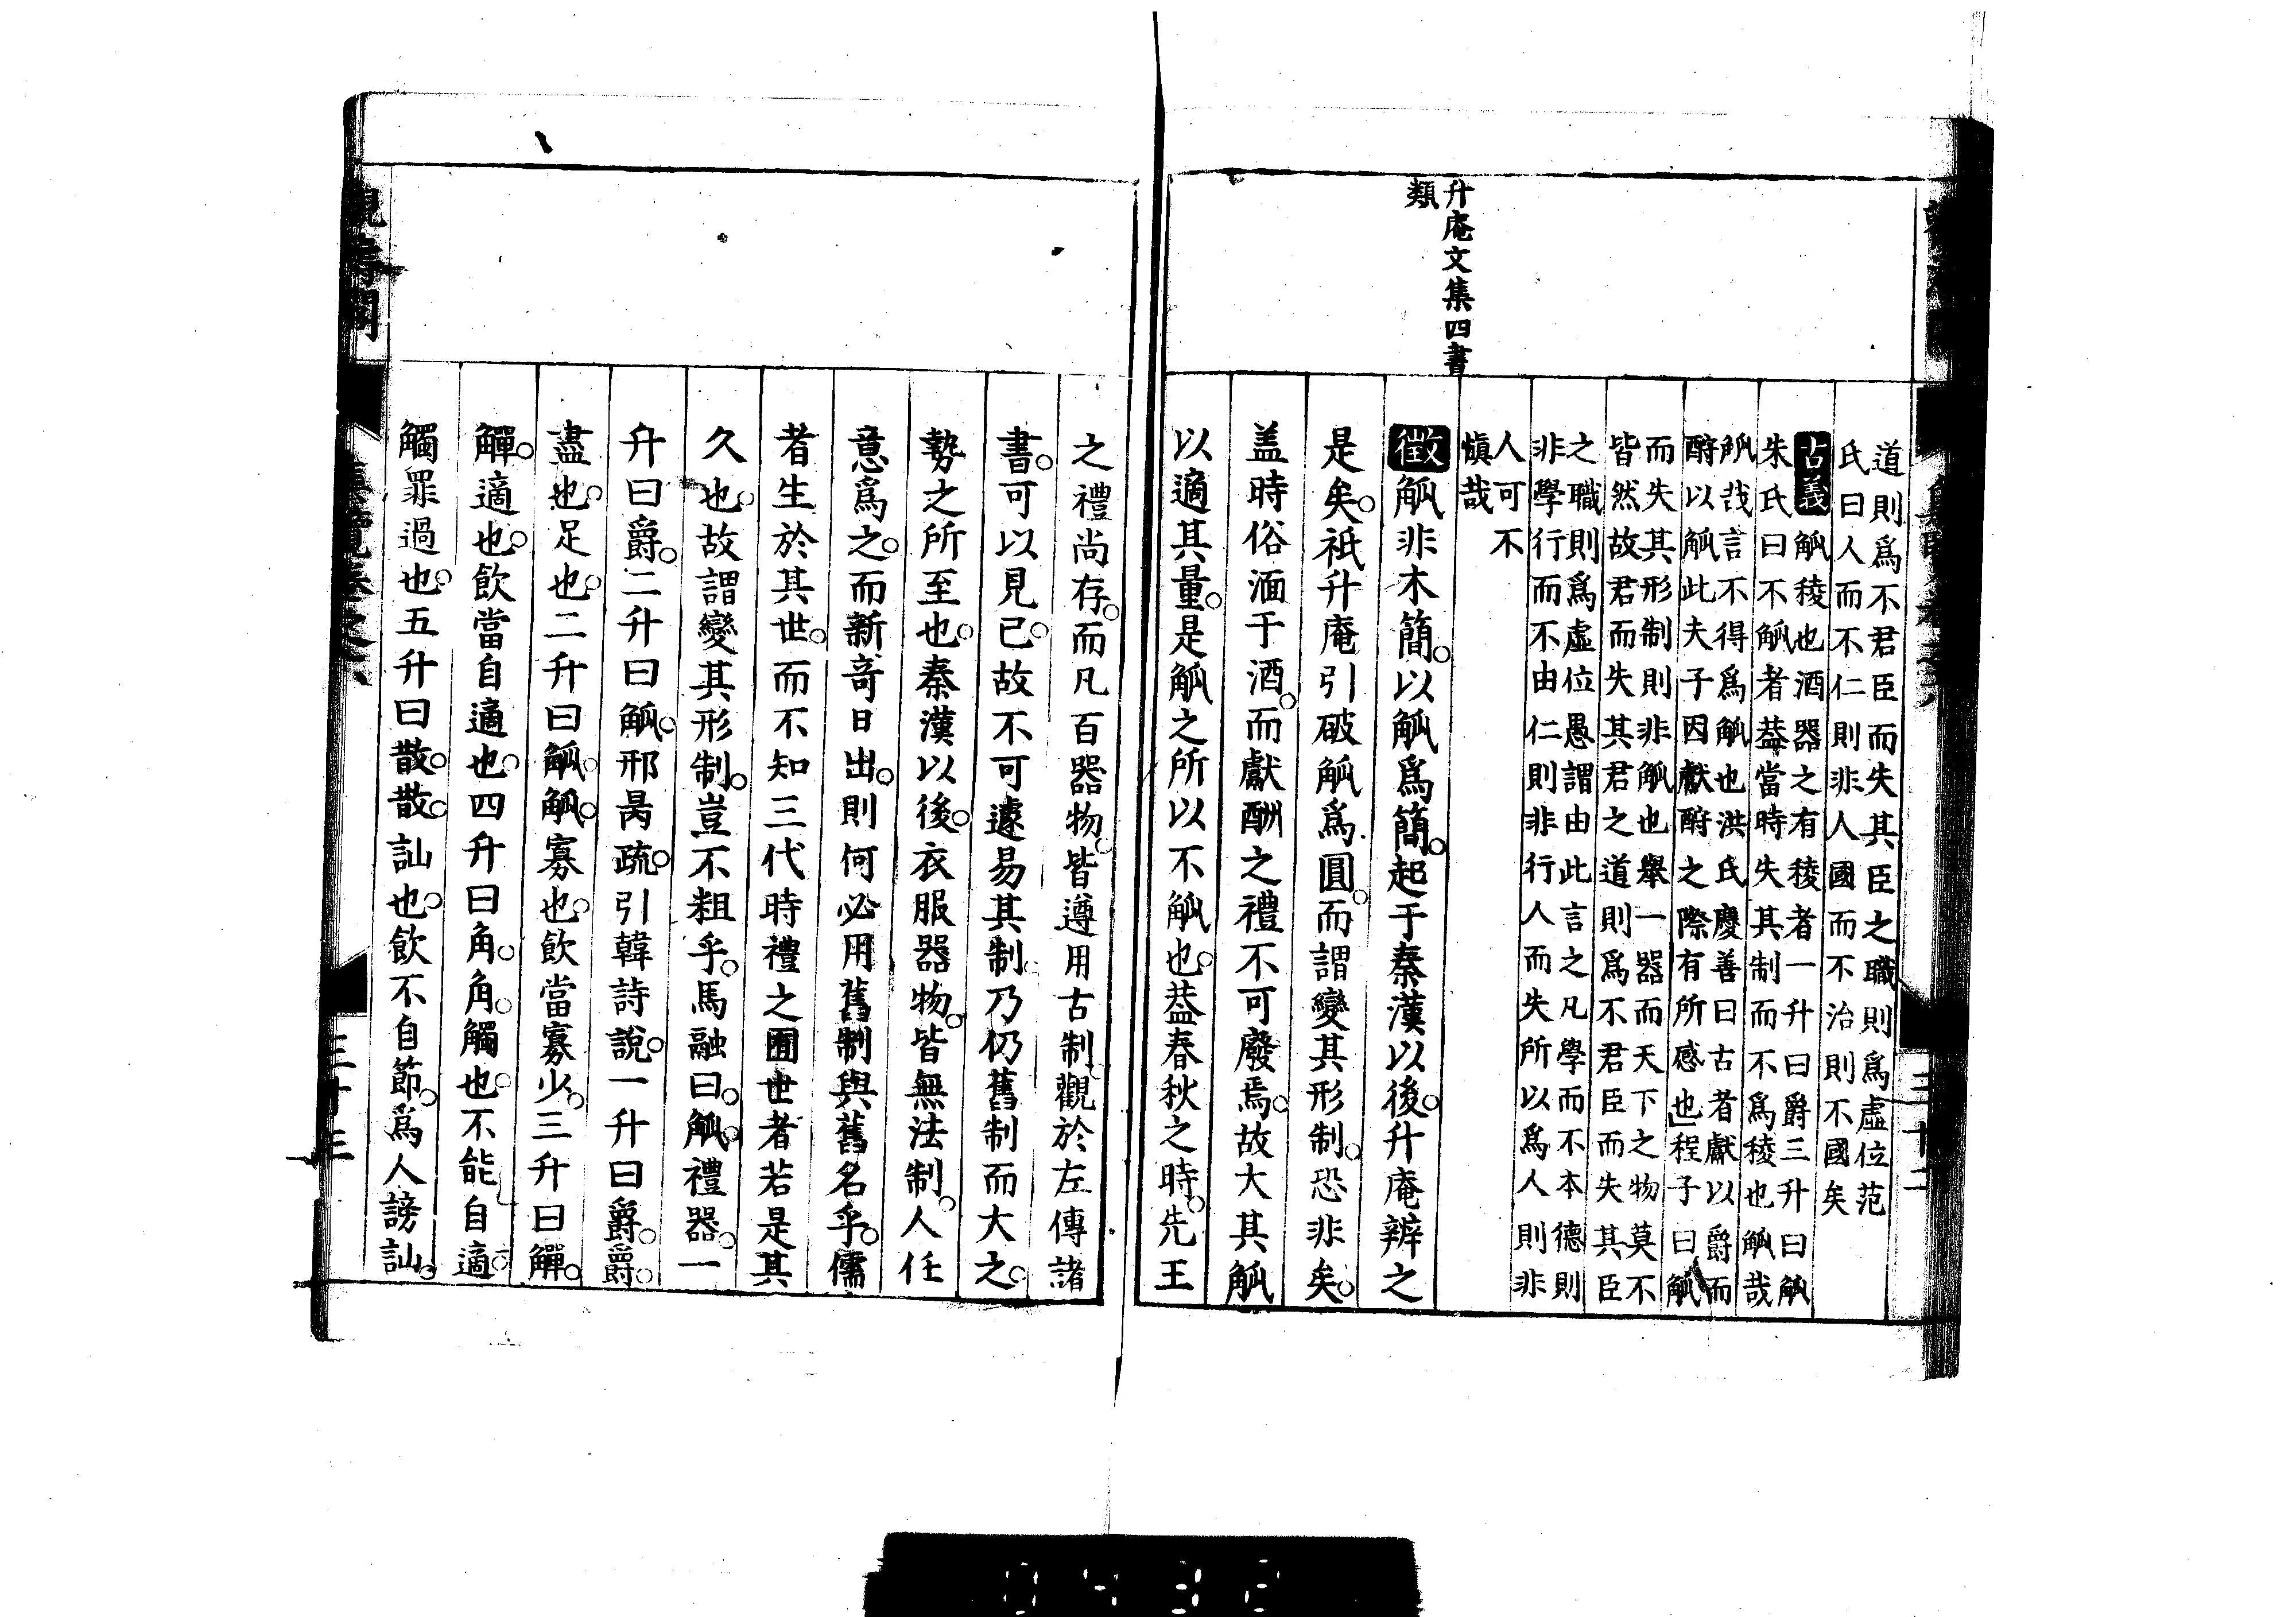 升庵文集四書
類
道則爲不君臣而失其臣之職則爲虛位范
氏曰人而不仁則非人國而不治則不國矣
古義觚稜也酒器之有稜者一升曰爵三升曰觚
朱氏曰不觚者葢當時失其制而不爲稜也觚哉
觚哉言不得爲觚也洪氏慶善曰古者獻以爵而
酧以觚此夫子因獻酧之際有所感也程子曰觚
而失其形制則非觚也舉一器而天下之物莫不
皆然故君而失其君之道則爲不君臣而失其臣
之職則爲虛位愚謂由此言之凡學而不本德則
非學行而不由仁則非行人而失所以爲人則非
人可不
愼哉
徵觚非木簡以觚爲簡起于秦漢以後升庵辨之
是矣祇升庵引破觚爲圓而謂變其形制恐非矣
盖時俗湎于酒而獻酬之禮不可廢焉故大其觚
以適其量是觚之所以不觚也葢春秋之時先王
之禮尚存而凡百器物皆遵用古制觀於左傳諸
書可以見已故不可遽易其制乃仍舊制而大之
勢之所至也秦漢以後衣服器物皆無法制人任
意爲之而新奇日出則何必用舊制與舊名乎儒
者生於其世而不知三代時禮之囿世者若是其
久也故謂變其形制豈不粗乎馬融曰觚禮器一
升曰爵二升曰觚邢昺疏引韓詩說一升曰爵爵
盡也足也二升曰觚觚寡也飲當寡少三升曰觶
觶適也飲當自適也四升曰角角觸也不能自適
觸罪過也五升曰散散訕也飲不自節爲人謗訕
集覽卷之六
三十三